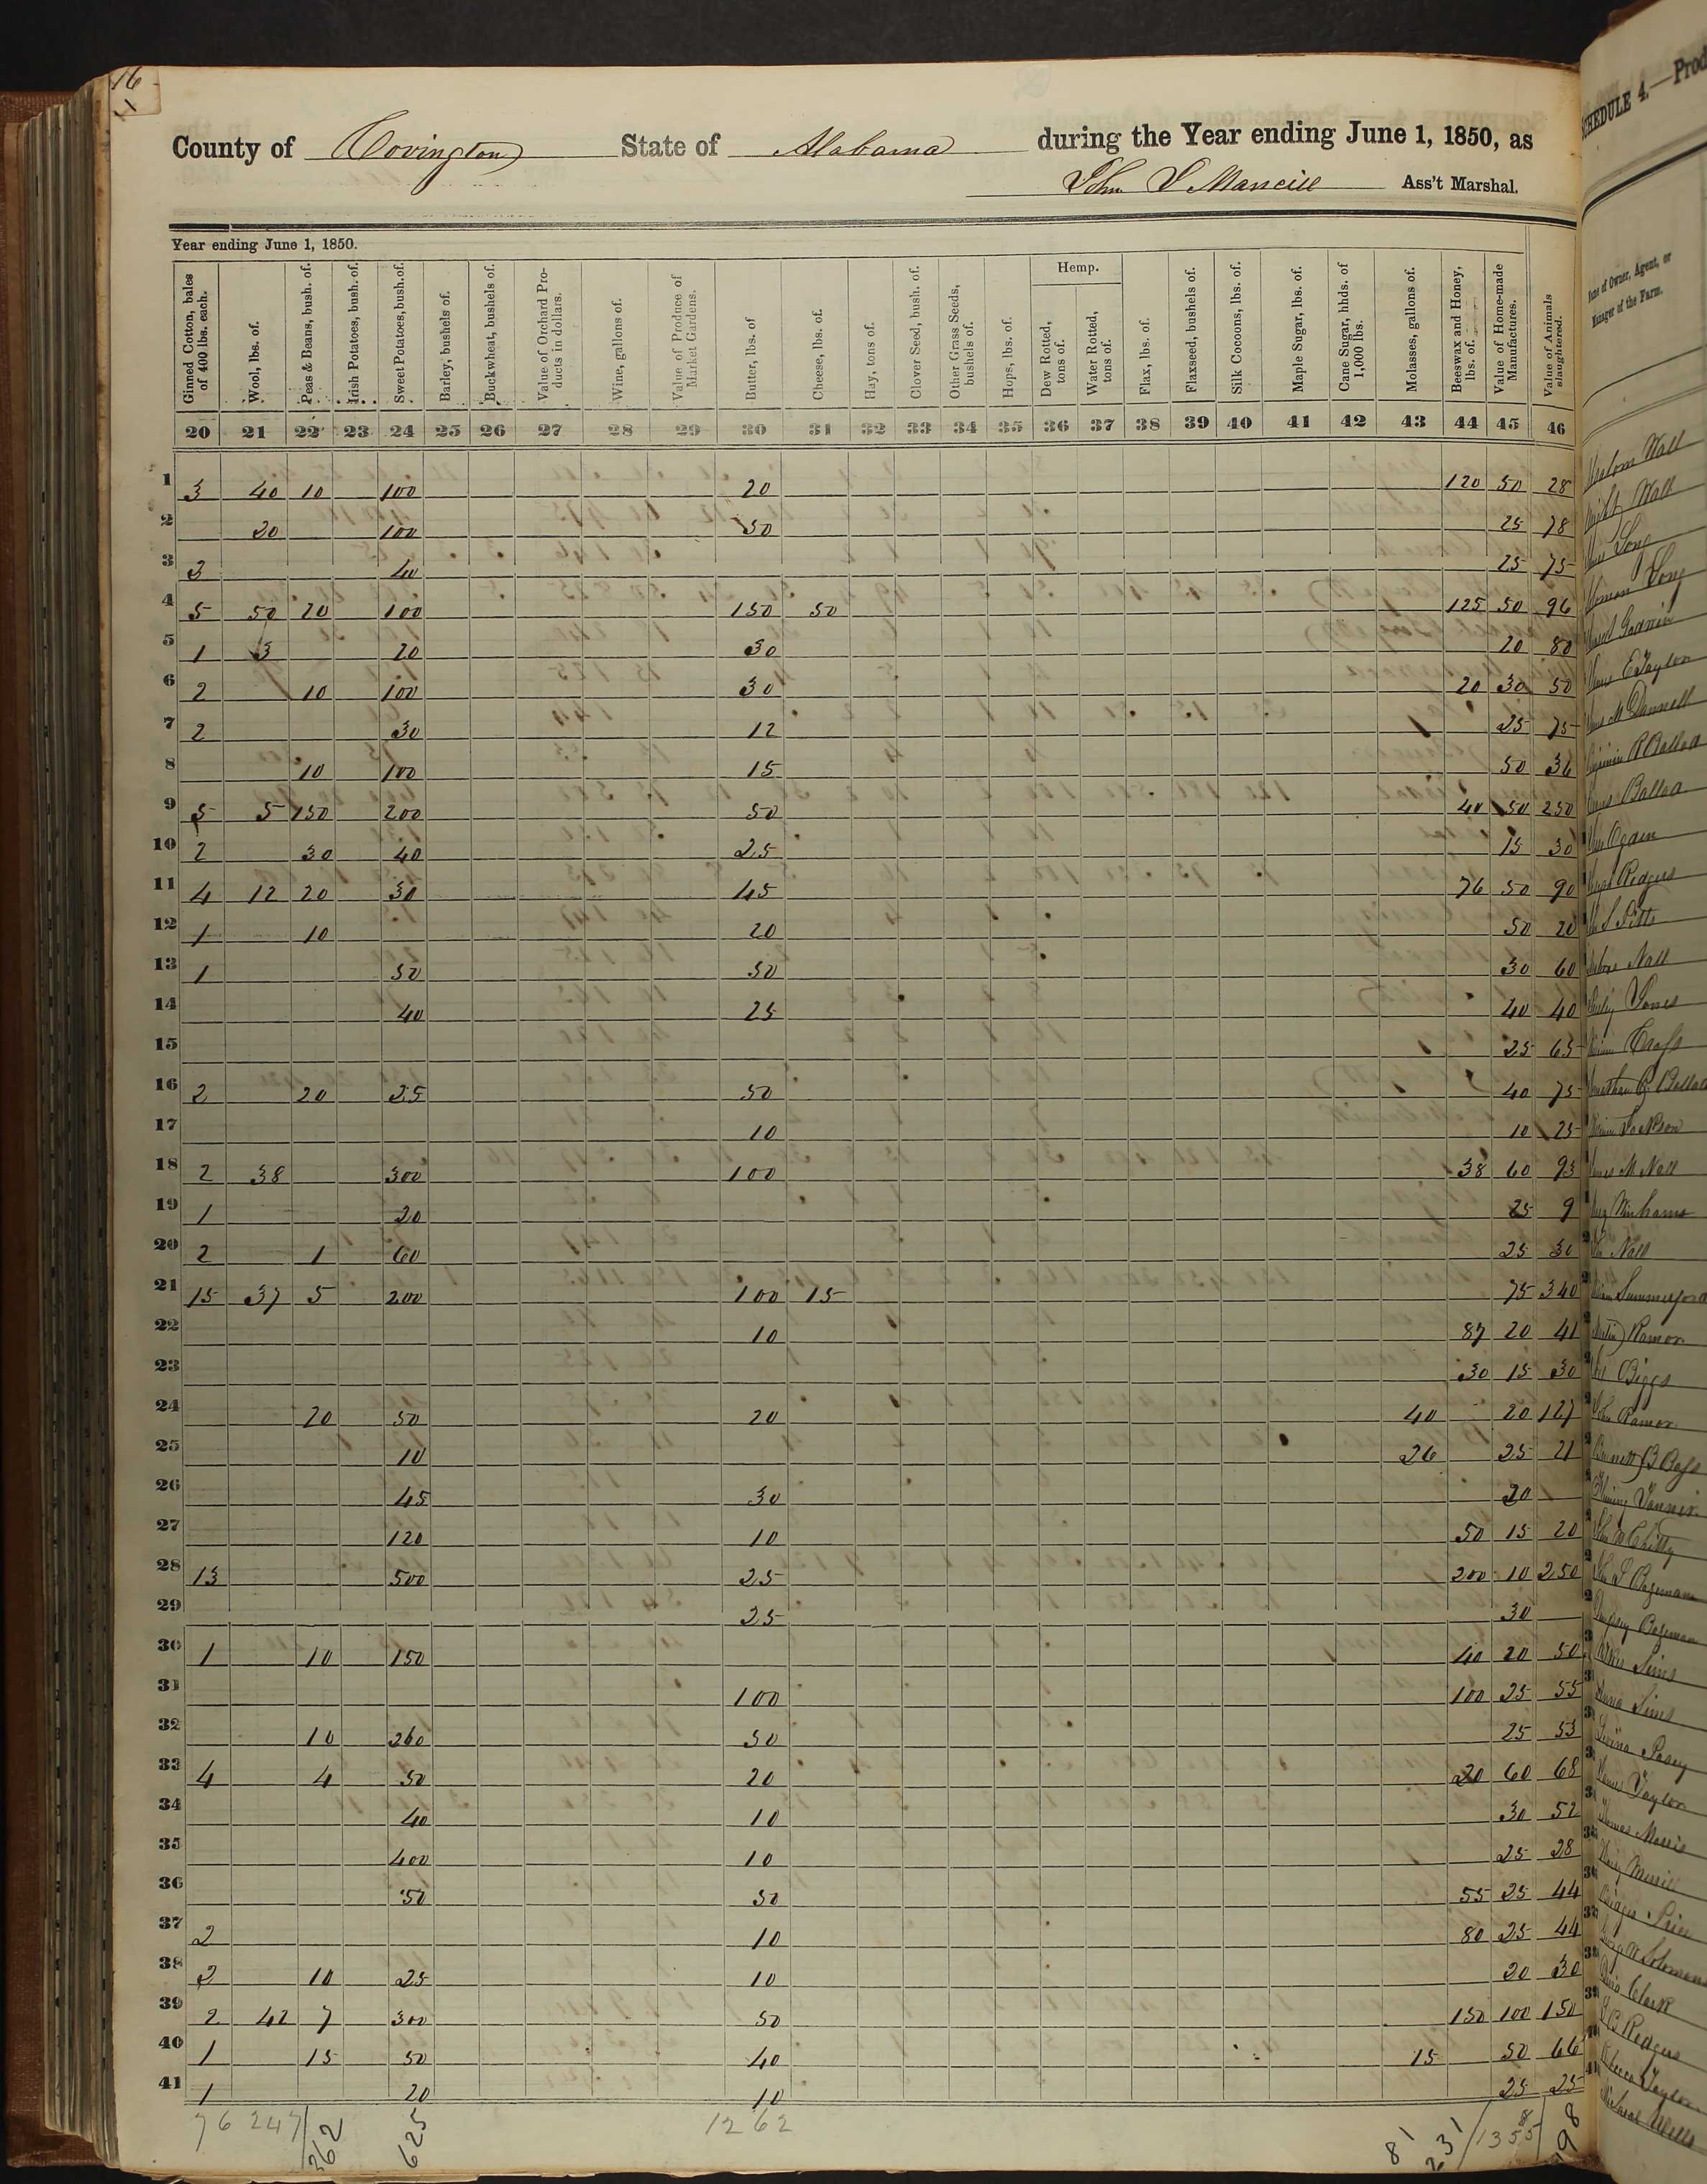 16
County of Covington State of Alabama during the Year ending June 1, 1850, as
Ass't Marshal.
SCHEDULE 4.—Prod
Year ending June 1, 1850.
Name of Owner, Agent, or Manager of the Farm.
Ginned Cotton, bales of 400 lbs. each. Wool, lbs. of. Peas & Beans, bush. of. Irish Potatoes, bush. of. Sweet Potatoes, bush. of. Barley, bushels of. Buckwheat, bushels of. Value of Orchard Products in dollars. Wine, gallons of. Value of Produce of Market Gardens. Butter, lbs. of Cheese, lbs. of. Hay, tons of. Clover Seed, bush. of. Other Grass Seeds, bushels of. Hops, lbs. of. Hemp. Dew Rotted, tons of. Water Rotted, tons of. Flax, lbs. of. Flaxseed, bushels of. Silk Cocoons, lbs. of. Maple Sugar, lbs. of. Cane Sugar, hhds. of 1,000 lbs. Molasses, gallons of. Beeswax and Honey, lbs. of. Value of Home-made Manufactures. Value of Animals slaughtered.
20 21 22 23 24 25 26 27 28 29 30 31 32 33 34 35 36 37 38 39 40 41 42 43 44 45 46
1 3 40 10 100 20 120 50 28
2 20 100 50 25 78
3 3 40 25 75
4 5 50 20 100 150 50 125 50 96
5 1 3 20 30 20 80
6 2 10 100 30 20 30 50
7 2 30 12 25 75
8 10 100 15 50 36
9 5 5 150 200 50 40 50 250
10 2 30 40 25 15 30
11 4 12 20 30 45 76 50 90
12 1 10 20 50 20
13 1 50 50 30 60
14 40 25 40 40
15 25 65
16 2 20 25 50 40 75
17 10 10 25
18 2 38 300 100 38 60 93
19 1 20 25 9
20 2 1 60 25 30
21 15 37 5 200 100 15 75 340
22 10 87 20 41
23 30 15 30
24 20 50 20 40 20 127
25 10 26 25 21
26 45 30 20
27 120 10 50 15 20
28 13 500 25 200 10 250
29 25 30
30 1 10 150 40 20 50
31 100 100 25 55
32 10 260 50 25 53
33 4 4 50 20 20 60 68
34 40 10 30 52
35 400 10 25 28
36 50 50 55 25 44
37 2 10 80 25 44
38 2 10 25 10 20 30
39 2 42 7 300 50 150 100 150
40 1 15 50 40 15 50 66
41 1 20 10 25 25
76 247 362 625 1262 81 231